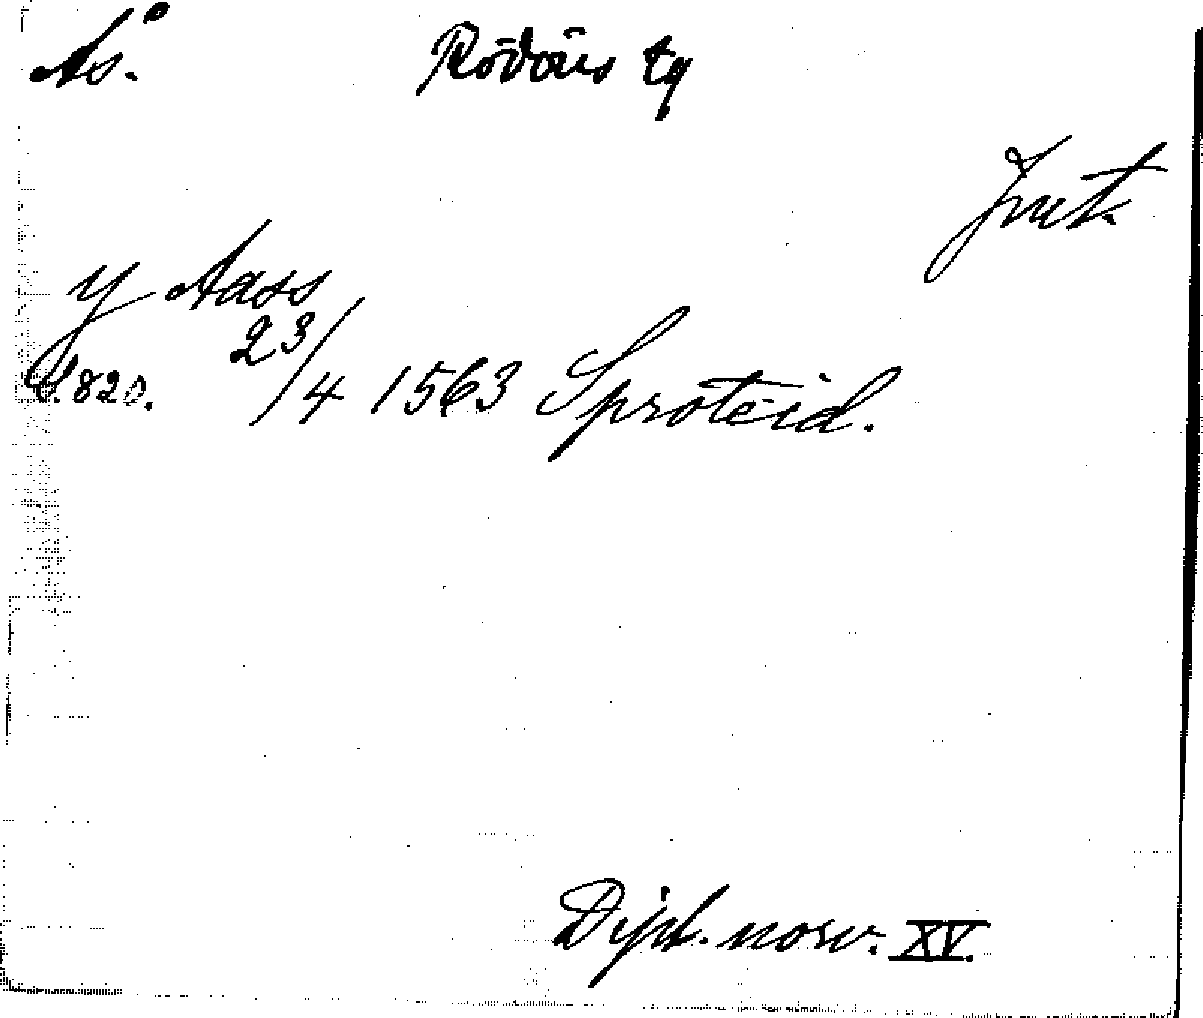 Ås. Rödöns tg
Jmt.
y Aass
S. 820. 23/4 1563 Sproteid.
Dipl. norv. XV.